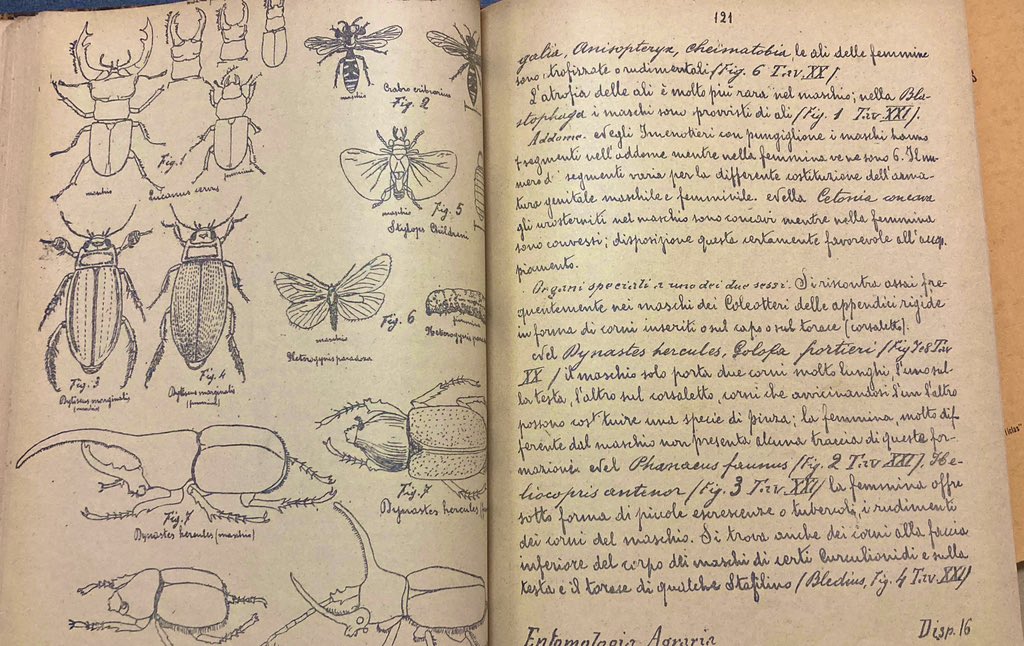 maschio
Crabro cribrarius
Fig. 2
Fig. 1
maschio
femmina
Lucanus cervus
maschio
Fig. 5
Stylops Childreni
Fig. 6
maschio
femmina
Heterogynis paradoxa
Heterogynis
Fig. 3
Dytiscus marginalis
(maschio)
Fig. 4
Dytiscus marginalis
(femmina)
Fig. 7
Dynastes hercules (maschio)
Fig. 7
Dynastes hercules
121
galia, Anisopteryx, Cheimatobia, le ali delle femmine
sono atrofizzate o rudimentali (Fig. 6 Tav. XX).
L'atrofia delle ali è molto più rara nel maschio; nella Bla-
stophaga i maschi sono provvisti di ali (Fig. 1 Tav. XXI).
Addome. Negli Imenotteri con pungiglione i maschi hanno
7 segmenti nell'addome mentre nella femmina ve ne sono 6. Il nu-
mero di segmenti varia per la differente costituzione dell'arma-
tura genitale maschile e femminile. Nella Cetonia
gli urosterniti nel maschio sono concavi mentre nella femmina
sono convessi; disposizione questa certamente favorevole all'accop-
piamento.
Organi speciali a uno dei due sessi. Si riscontra assai fre-
quentemente nei maschi dei Coleotteri delle appendici rigide
in forma di corni inseriti o sul capo o sul torace (corsaletto).
Nel Dynastes hercules, Golofa portieri (Fig 7 e 8 Tav
XX) il maschio solo porta due corni molto lunghi, l'uno sul-
la testa, l'altro sul corsaletto, corni che avvicinandosi l'un l'altro
possono costituire una specie di pinza; la femmina, molto dif-
ferente dal maschio non presenta alcuna traccia di queste for-
mazioni. Nel Phanaeus faunus (Fig. 2 Tav. XXI). He-
liocopris antenor (Fig. 3 Tav. XXI) la femmina offre
sotto forma di piccole escrescenze o tubercoli, i rudimenti
dei corni del maschio. Si trova anche dei corni alla faccia
inferiore del corpo dei maschi di certi Curculionidi e sulla
testa e il torace di qualche Stafilino (Bledius, Fig. 4 Tav. XXI)
Entomologia Agraria
Disp. 16